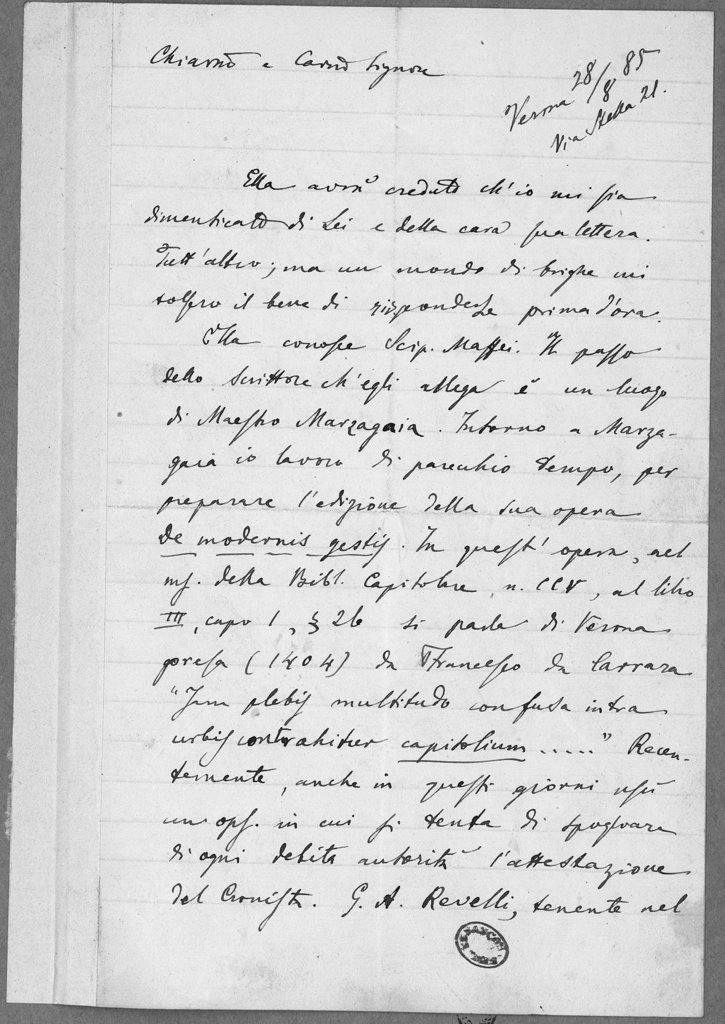 Chiarmo e Carmo Signore
Verona 28/8 85
Via Stella 21.
Ella avrà creduto ch'io mi sia
dimenticato di Lei e della cara sua lettera.
Tutt'altro; ma un mondo di brighe mi
tolsero il bene di risponderle prima d'ora.
Ella conosce Scip. Maffei. Il passo
dello scrittore ch'egli allega è un luogo
di Maestro Marzagaia. Intorno a Marza-
gaia io lavoro di parecchio tempo, per
preparare l'edizione della sua opera
de modernis gestis. In quest'opera, nel
ms. della Bibl. Capitolare, n. CCV, al libro
III, capo 1, § 26 si parla di Verona
presa (1404) da Francesco da Carrara
"Jam plebis multitudo confusa intra
urbis contrahitur capitolium ....." Recen-
temente, anche in questi giorni uscì
un ops. in cui si tenta di spogliare
di ogni debita autorità l'attestazione
del Cronista. G. A. Revelli, tenente nel